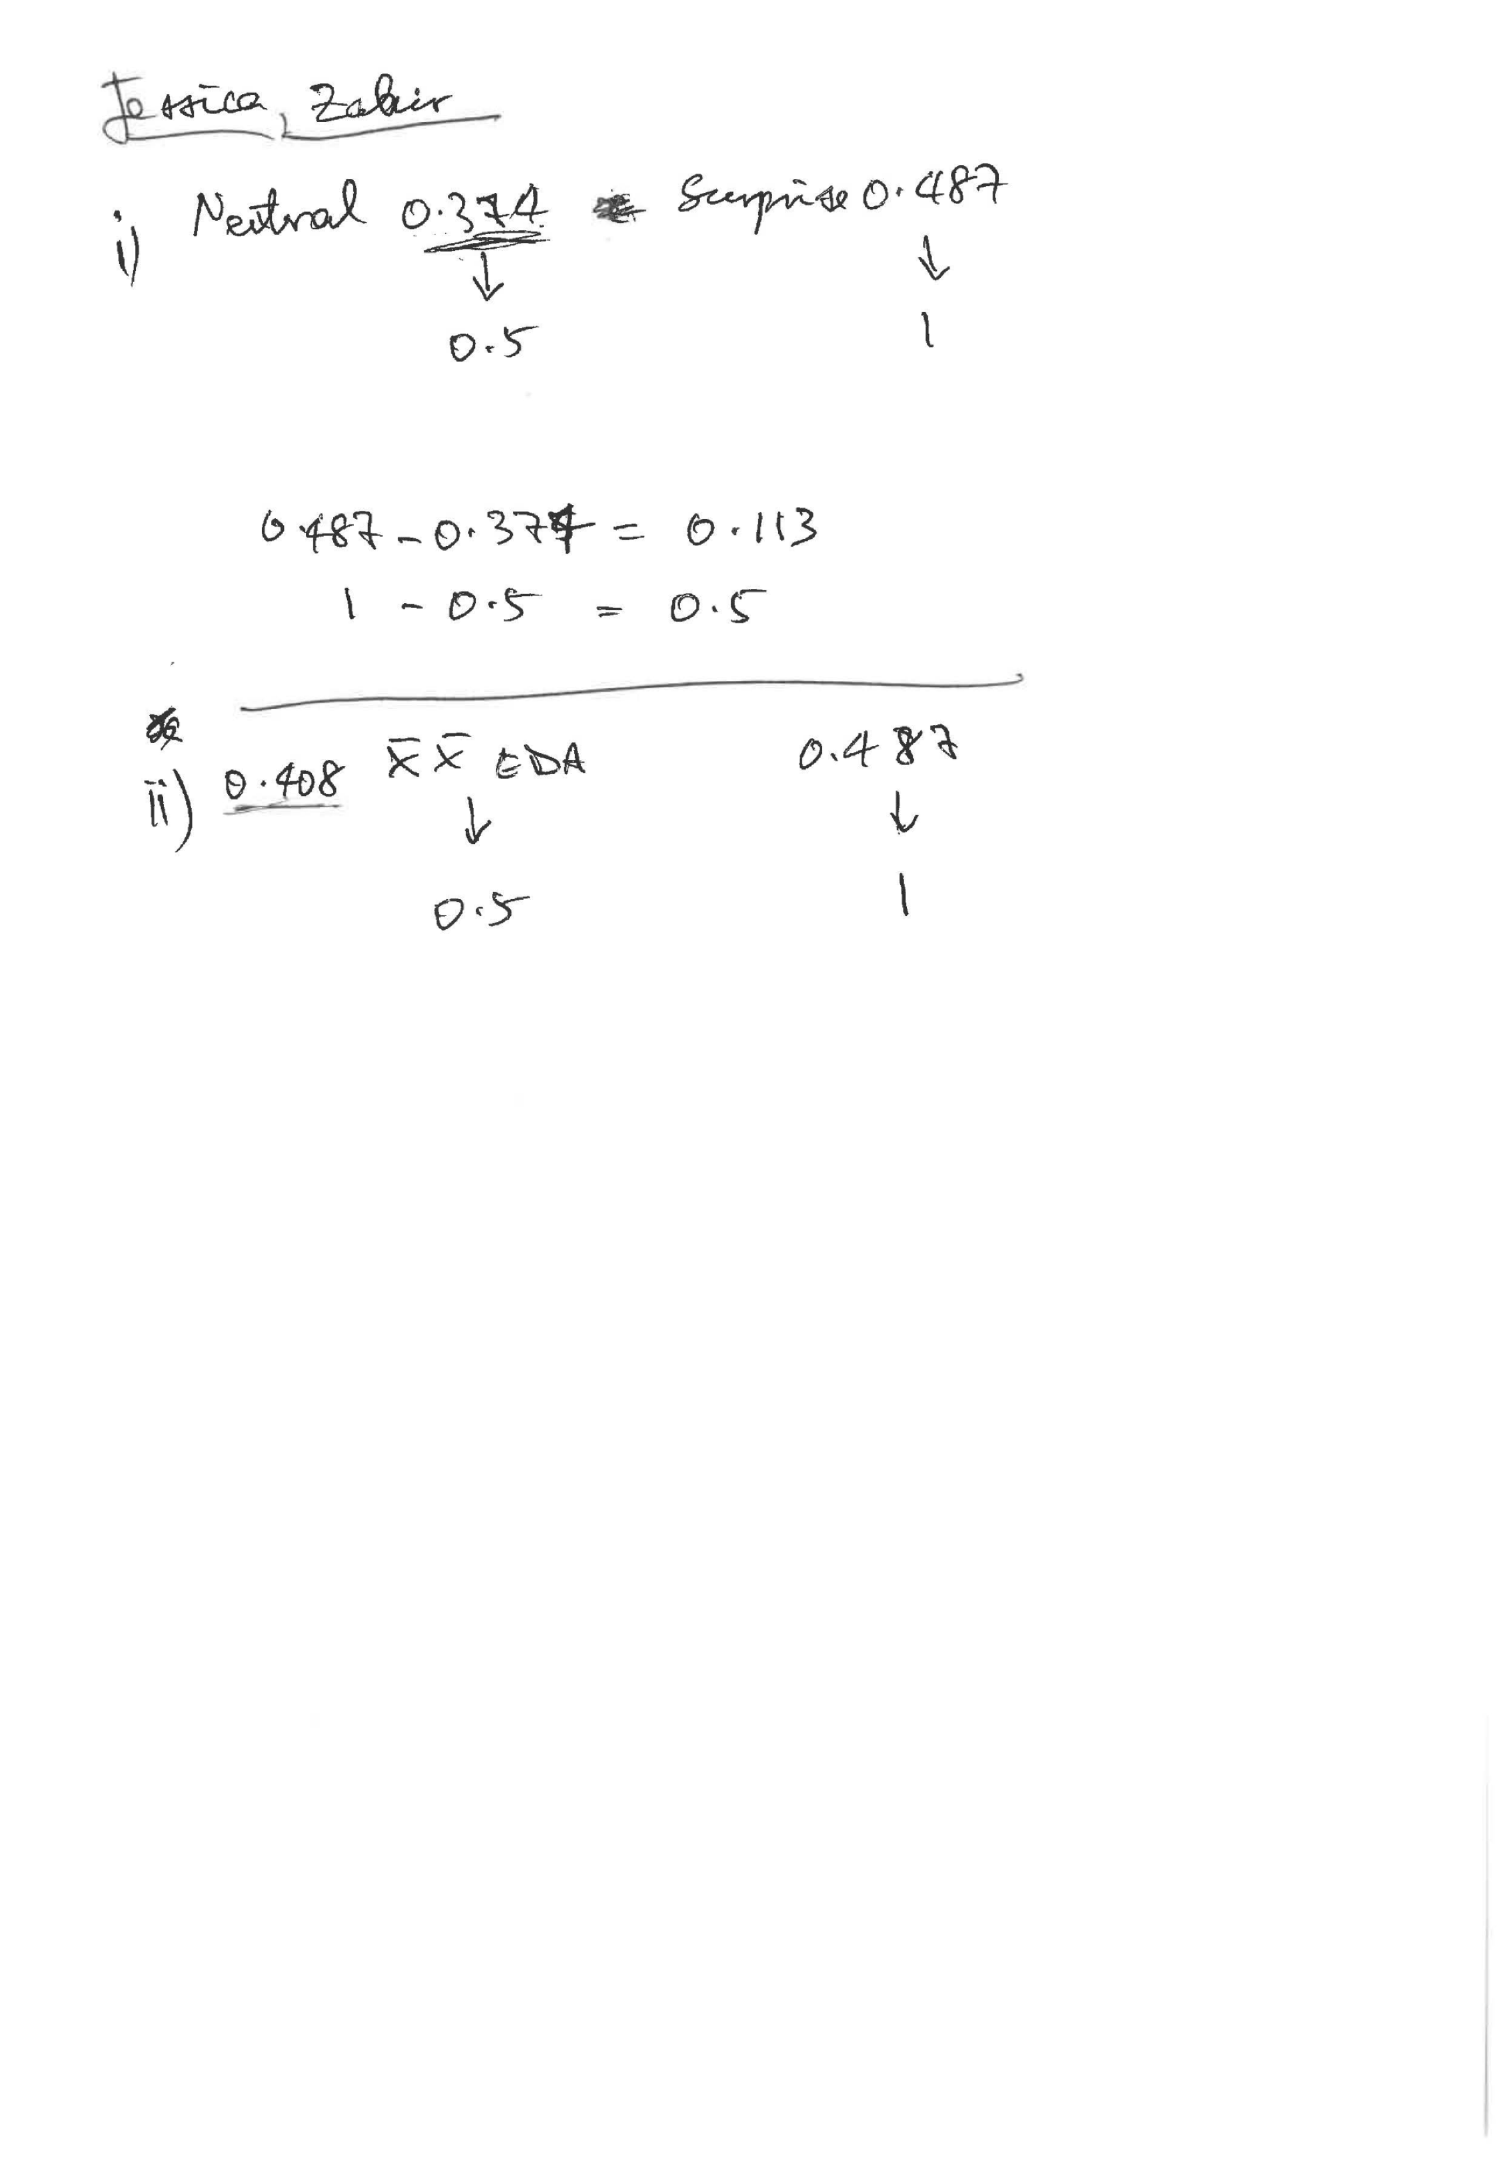 Jessica, Zabir
i) Neutral 0.374 Surprise 0.487
↓ ↓
0.5 1
0.487 - 0.374 = 0.113
1 - 0.5 = 0.5
ii) 0.408 x̄ x̄ EDA 0.487
↓ ↓
0.5 1